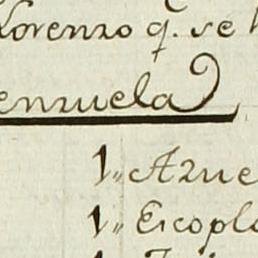 Lorenzo q. se
enzuela
1,, Azue
1,, Escoplo